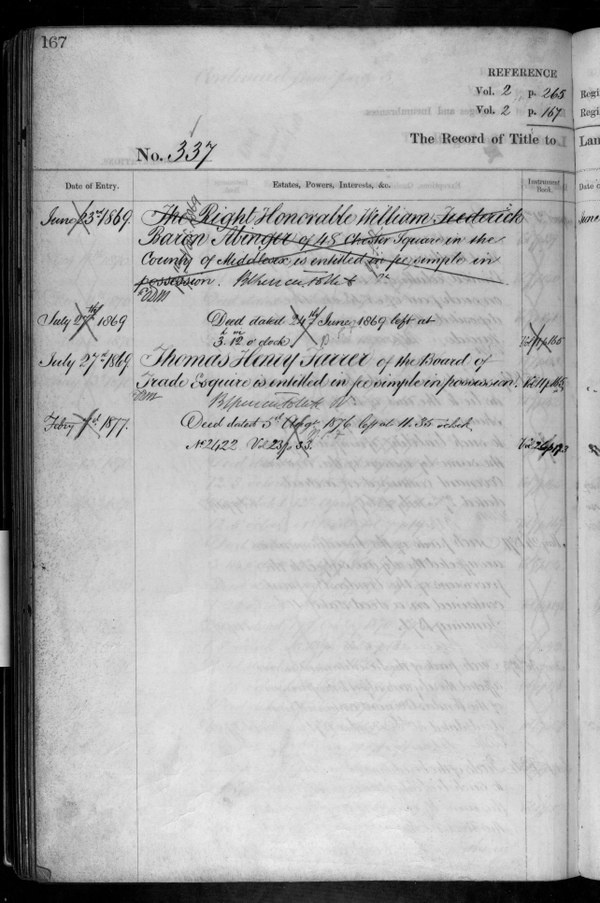 167
REFERENCE
Vol. 2 p. 265
Vol. 2 p. 167
Regi
Regi
The Record of Title to
Lan
No. 337
Date of Entry.
Estates, Powers, Interests, &c.
Instrument Book.
Date o
June 23rd 1869.
The Right Honorable William Frederick
June
Baron Abinger of 48 Chester Square in the
County of Middlesex is entitled in fee simple in
possession.
July 27th 1869
Deed dated 24th June 1869 left at
3.12 o'clock
Vol 11 p 165
July 27th 1869
Thomas Henry Farrer of the Board of
Trade Esquire is entitled in fee simple in possession.
Vol 11 p 165
Febry 1st 1877.
Deed dated 5th Augt 1876 left at 11.35 o'clock
No 2422 Vol 23 p 33.